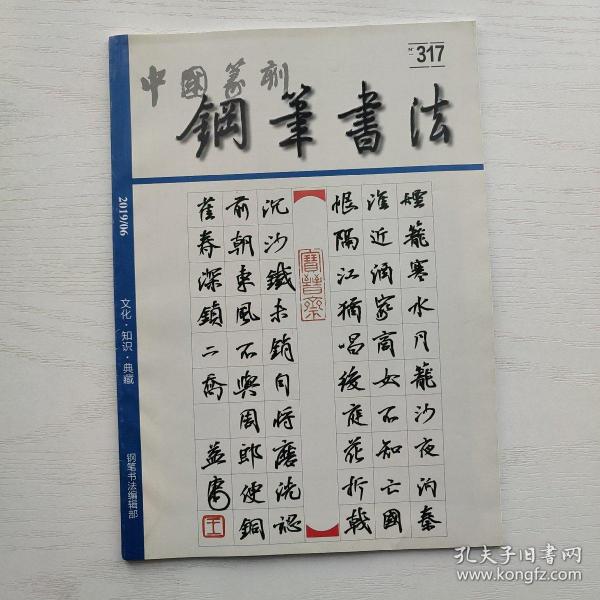 中國篆刻
鋼筆書法
N° 317
煙籠寒水月籠沙夜泊秦
淮近酒家商女不知亡國
恨隔江猶唱後庭花折戟
寶晉齋
沉沙鐵未銷自將磨洗認
前朝東風不與周郎便銅
雀春深鎖二喬
王
2019/06
文化·知识·典藏
钢笔书法编辑部
孔夫子旧书网
www.kongfz.com